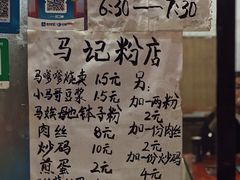 6:30—7:30
马记粉店
马嗲嗲烧卖 1.5元 另:
小马哥豆浆 1.5元 加一两粉
马娭毑钵子粉 2元
肉丝 8元 加一份肉丝
炒码 10元 2元
煎蛋 2元 加一份炒码
4元